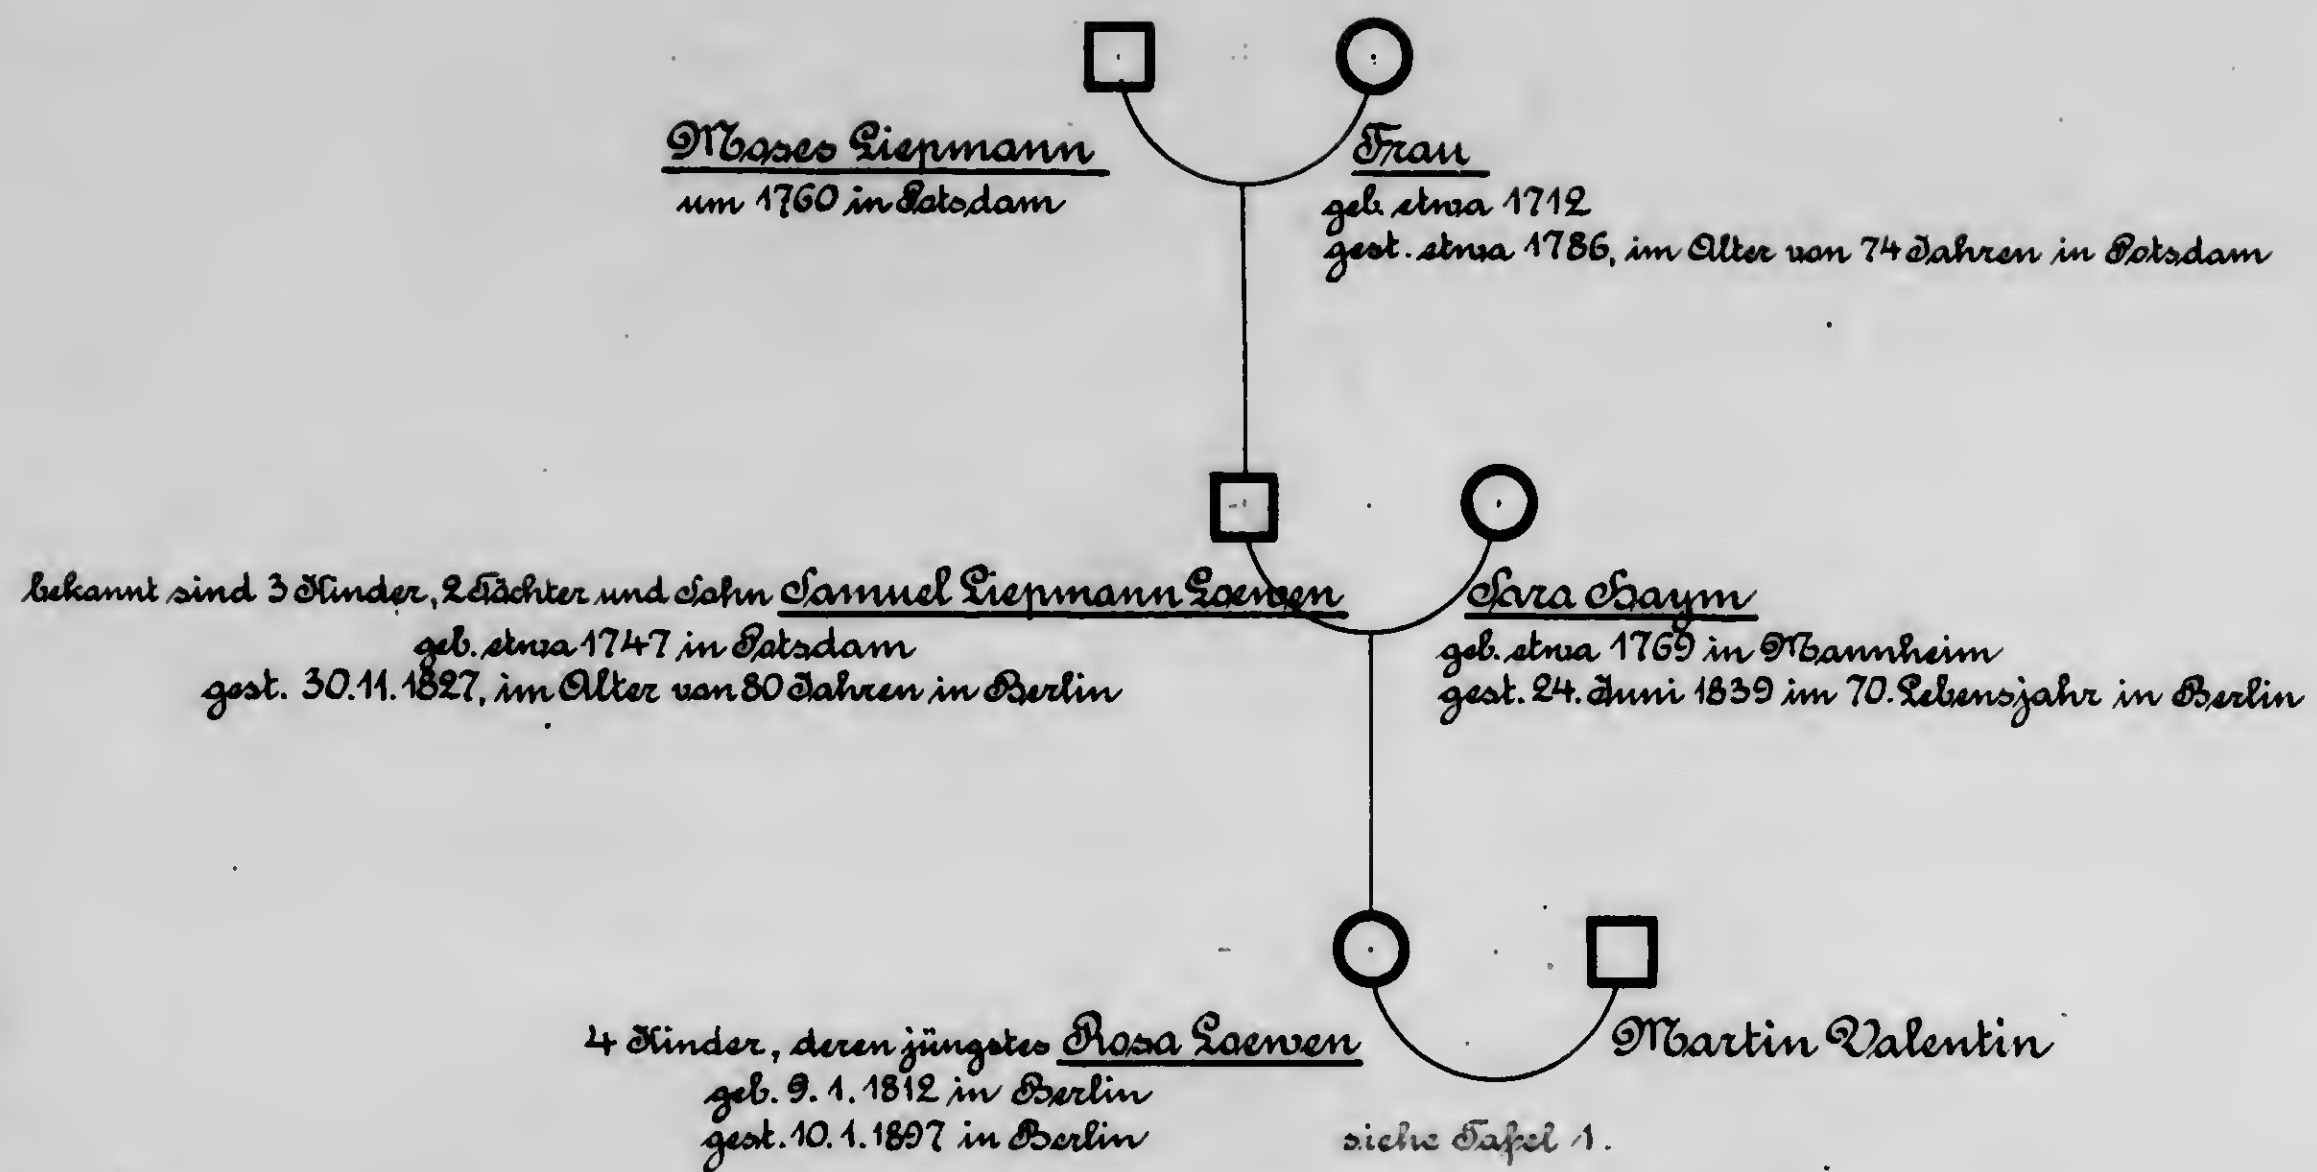 Moses Liepmann
um 1760 in Potsdam
Frau
geb. etwa 1712
gest. etwa 1786, im Alter von 74 Jahren in Potsdam
bekannt sind 3 Kinder, 2 Töchter und Sohn Samuel Liepmann Loewen
geb. etwa 1747 in Potsdam
gest. 30.11.1827, im Alter von 80 Jahren in Berlin
Sara Haym
geb. etwa 1769 in Mannheim
gest. 24. Juni 1839 im 70. Lebensjahr in Berlin
4 Kinder, deren jüngstes Rosa Loewen
geb. 9.1.1812 in Berlin
gest. 10.1.1897 in Berlin
Martin Valentin
siehe Tafel 1.